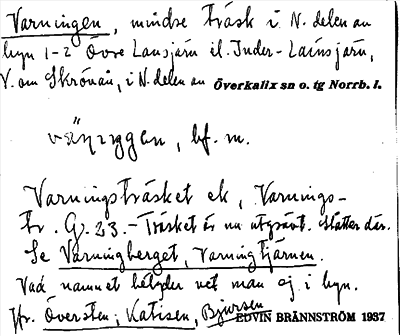 Varningen, mindre träsk i N. delen av
byn 1-2 Övre Lansjärv el. Inder-Lainsjärv,
V. om Skrövån, i N. delen av Överkalix sn o. tg Norrb. l.
bf. m.
Varningsträsket ek, Varnings-
tr. G. 23. - Träsket är nu utgrävt. Slåtter där.
Se Varningberget, Varningtjärnen.
Vad namnet betyder vet man ej i byn.
Jfr. Översten, Katisen, Bjursen
EDVIN BRÄNNSTRÖM 1937